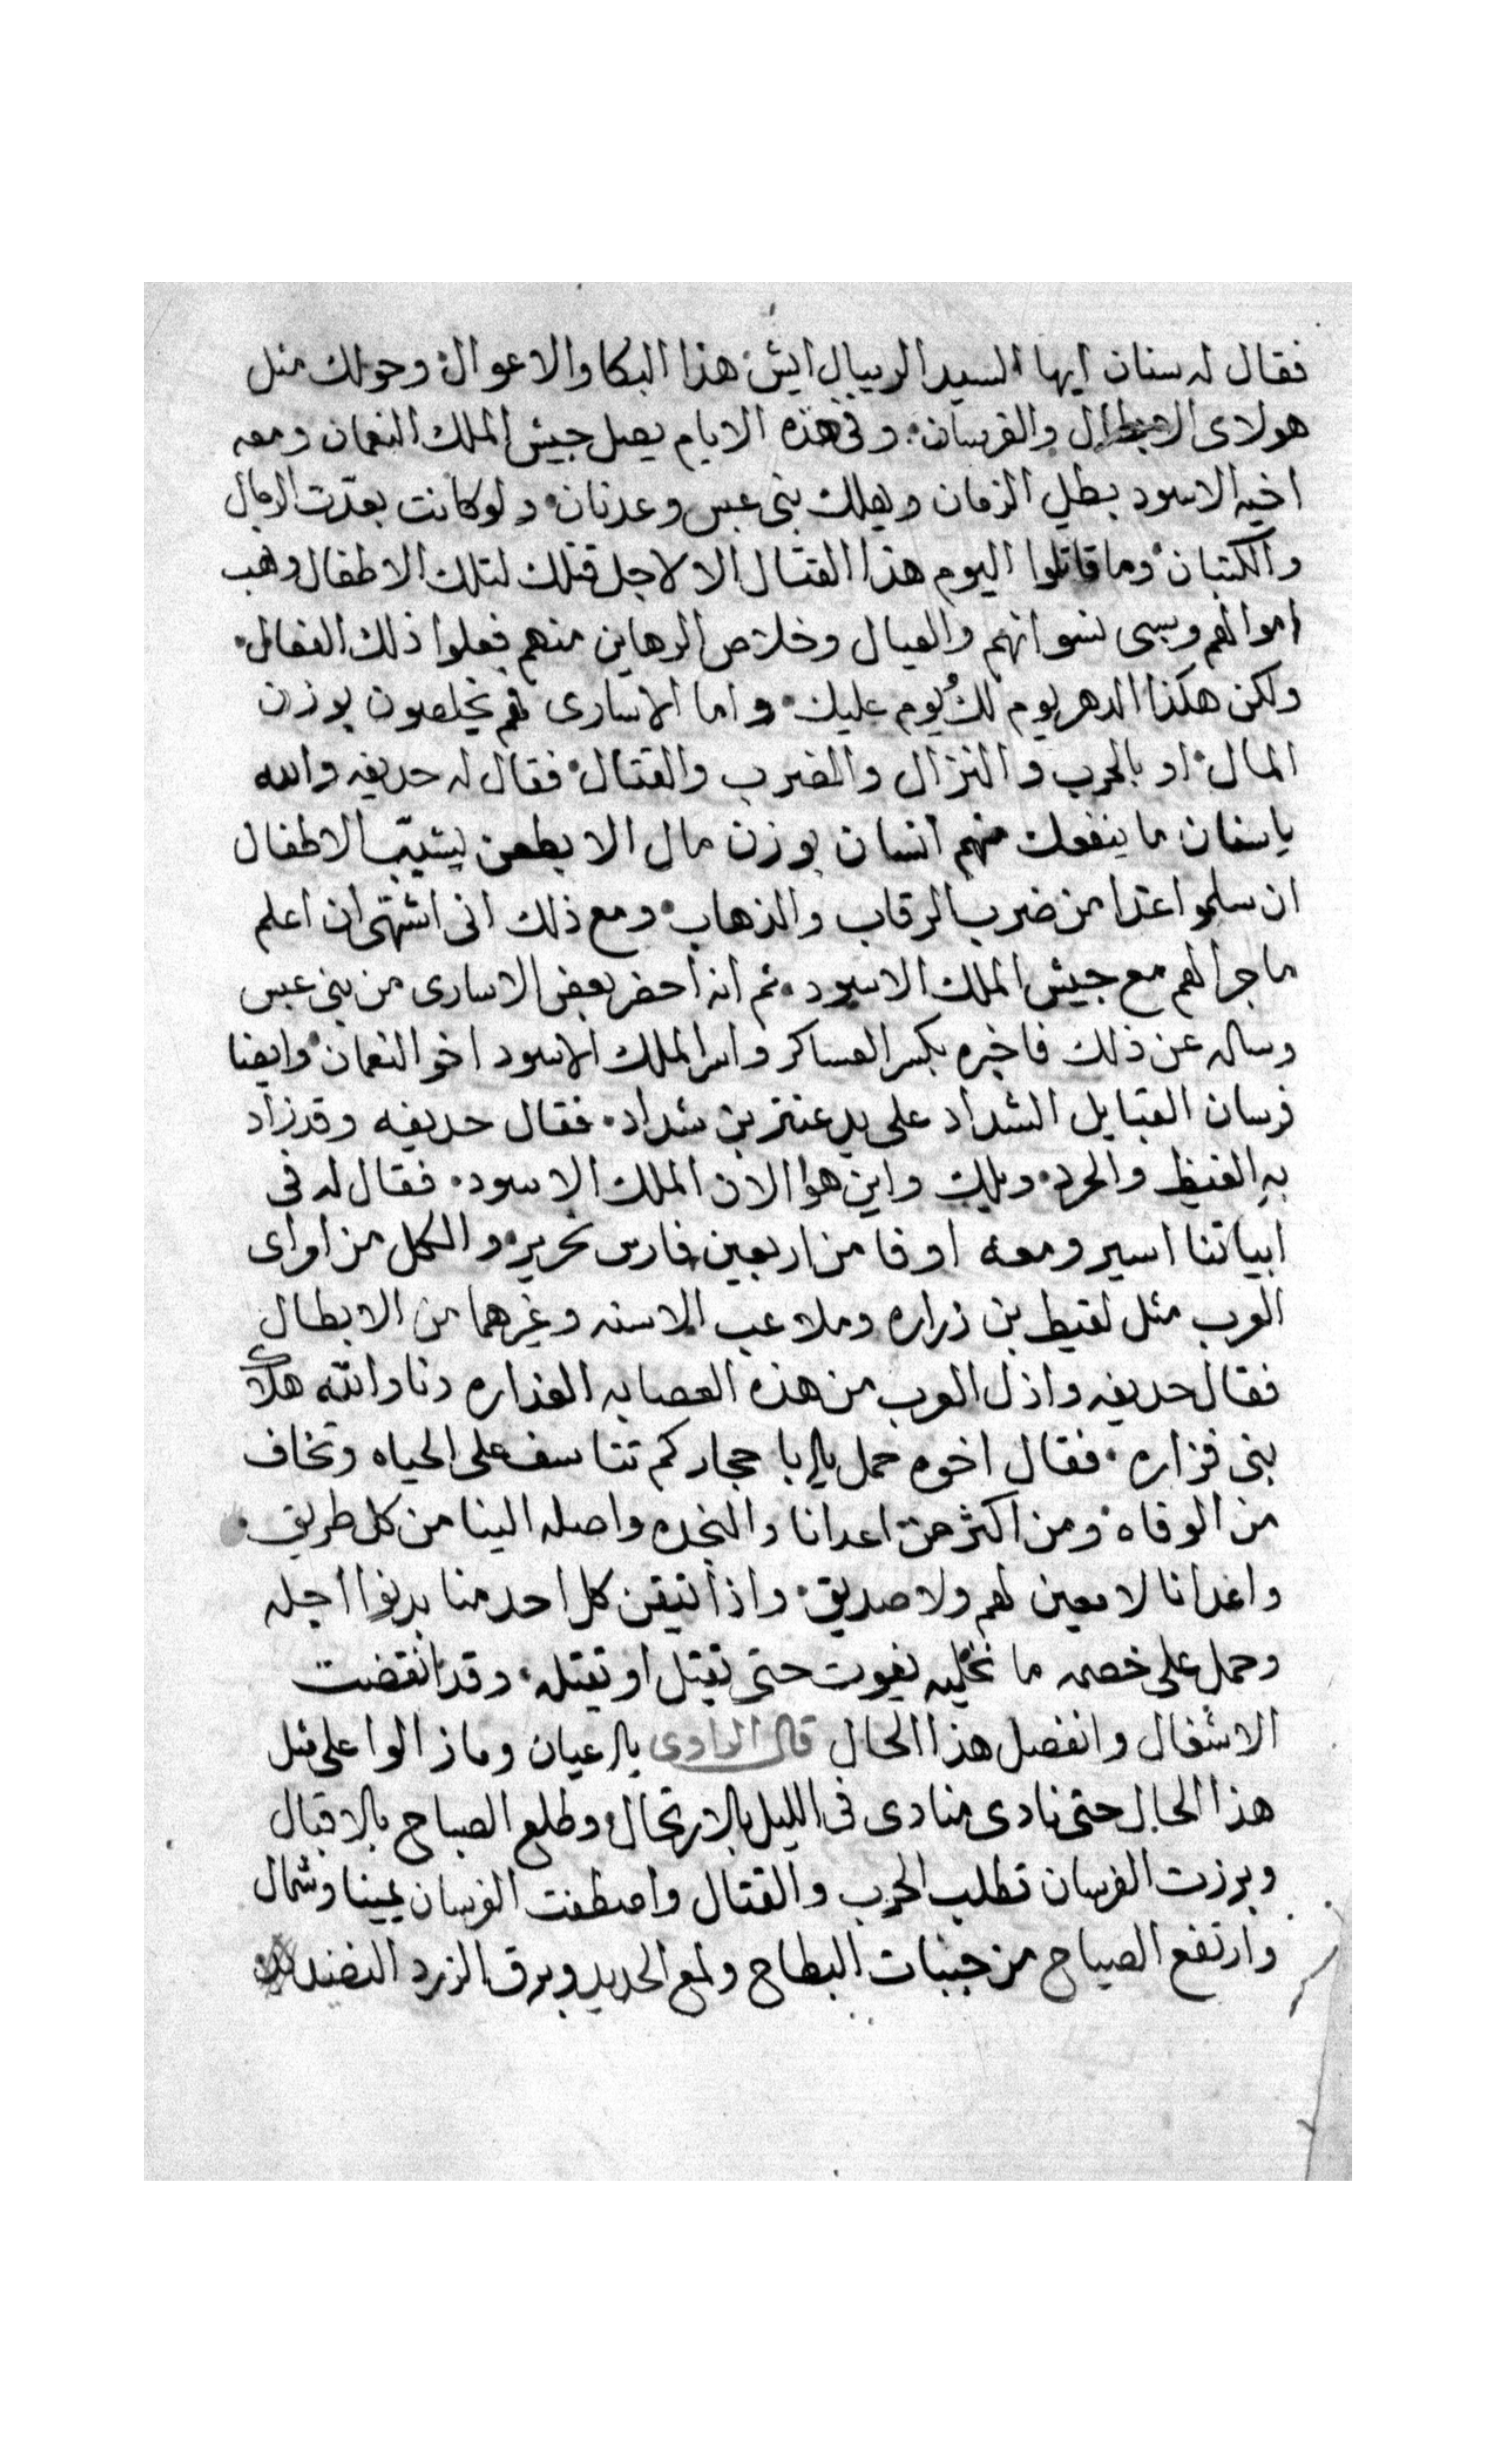 فقال له سنان ايها السيد الريبال ايش هذا البكا والاعوال وحولك مثل
هولاى الابطال والفرسان وفى هذه الايام يصل جيش الملك النعمان ومعه
اخيه الاسود بطل الزمان ويهلك بنى عبس وعدنان ولو كانت بعدّت الرمال
والكثبان وما قاتلوا اليوم هذا القتال الا لاجل قتلك لتلك الاطفال ونهب
اموالهم وسبى نسوانهم والعيال وخلاص الرهاين منهم فعلوا ذلك الفعال
ولكن هكذا الدهر يوم لك ويوم عليك واما الاسارى فهم يخلصون بوزن
المال او بالحرب والنزال والضرب والقتال فقال له حديفه والله
ياسنان ما ينفعك منهم انسان بوزن مال الا بطعن يشيّب الاطفال
ان سلموا غدا من ضرب الرقاب والذهاب ومع ذلك انى اشتهى ان اعلم
ما جرا لهم مع جيش الملك الاسود ثم انه احضر بعض الاسارى من بنى عبس
وساله عن ذلك فاخبره بكسر العساكر واسر الملك الاسود اخو النعمان وايضا
فرسان القبايل الشداد على يد عنتر بن شداد فقال حديفه وقد زاد
به الغيظ والحرد ويلك واين هوا الان الملك الاسود فقال له فى
ابياتنا اسير ومعه اوفا من اربعين فارس نحرير والكل من امراى
العرب مثل لقيط بن زراره وملاعب الاسنه وغيرهما من الابطال
فقال حديفه واذل العرب من هذه العصابه الغداره دنا والله هلاك
بنى فزاره فقال اخوه حمل يا ابا حجار كم تتاسف على الحياه وتخاف
من الوفاه ومن اكثر من اعدانا والنجده واصله الينا من كل طريق
واعدانا لا معين لهم ولا صديق واذا تيقن كل احد منا بدنوا اجله
وحمل على خصمه ما نخليه يفوت حتى تقتل او تقتله وقد انقضت
الاشغال وانفصل هذا الحال قال الراوى يال عيان وما زالوا على مثل
هذا الحال حتى نادى منادى فى الليل بالارتحال وطلع الصباح بالاقبال
وبرزت الفرسان تطلب الحرب والقتال واصطفت الفرسان يمينا وشمال
وارتفع الصياح من جنبات البطاح ولمع الحديد وبرق الزرد النضيد